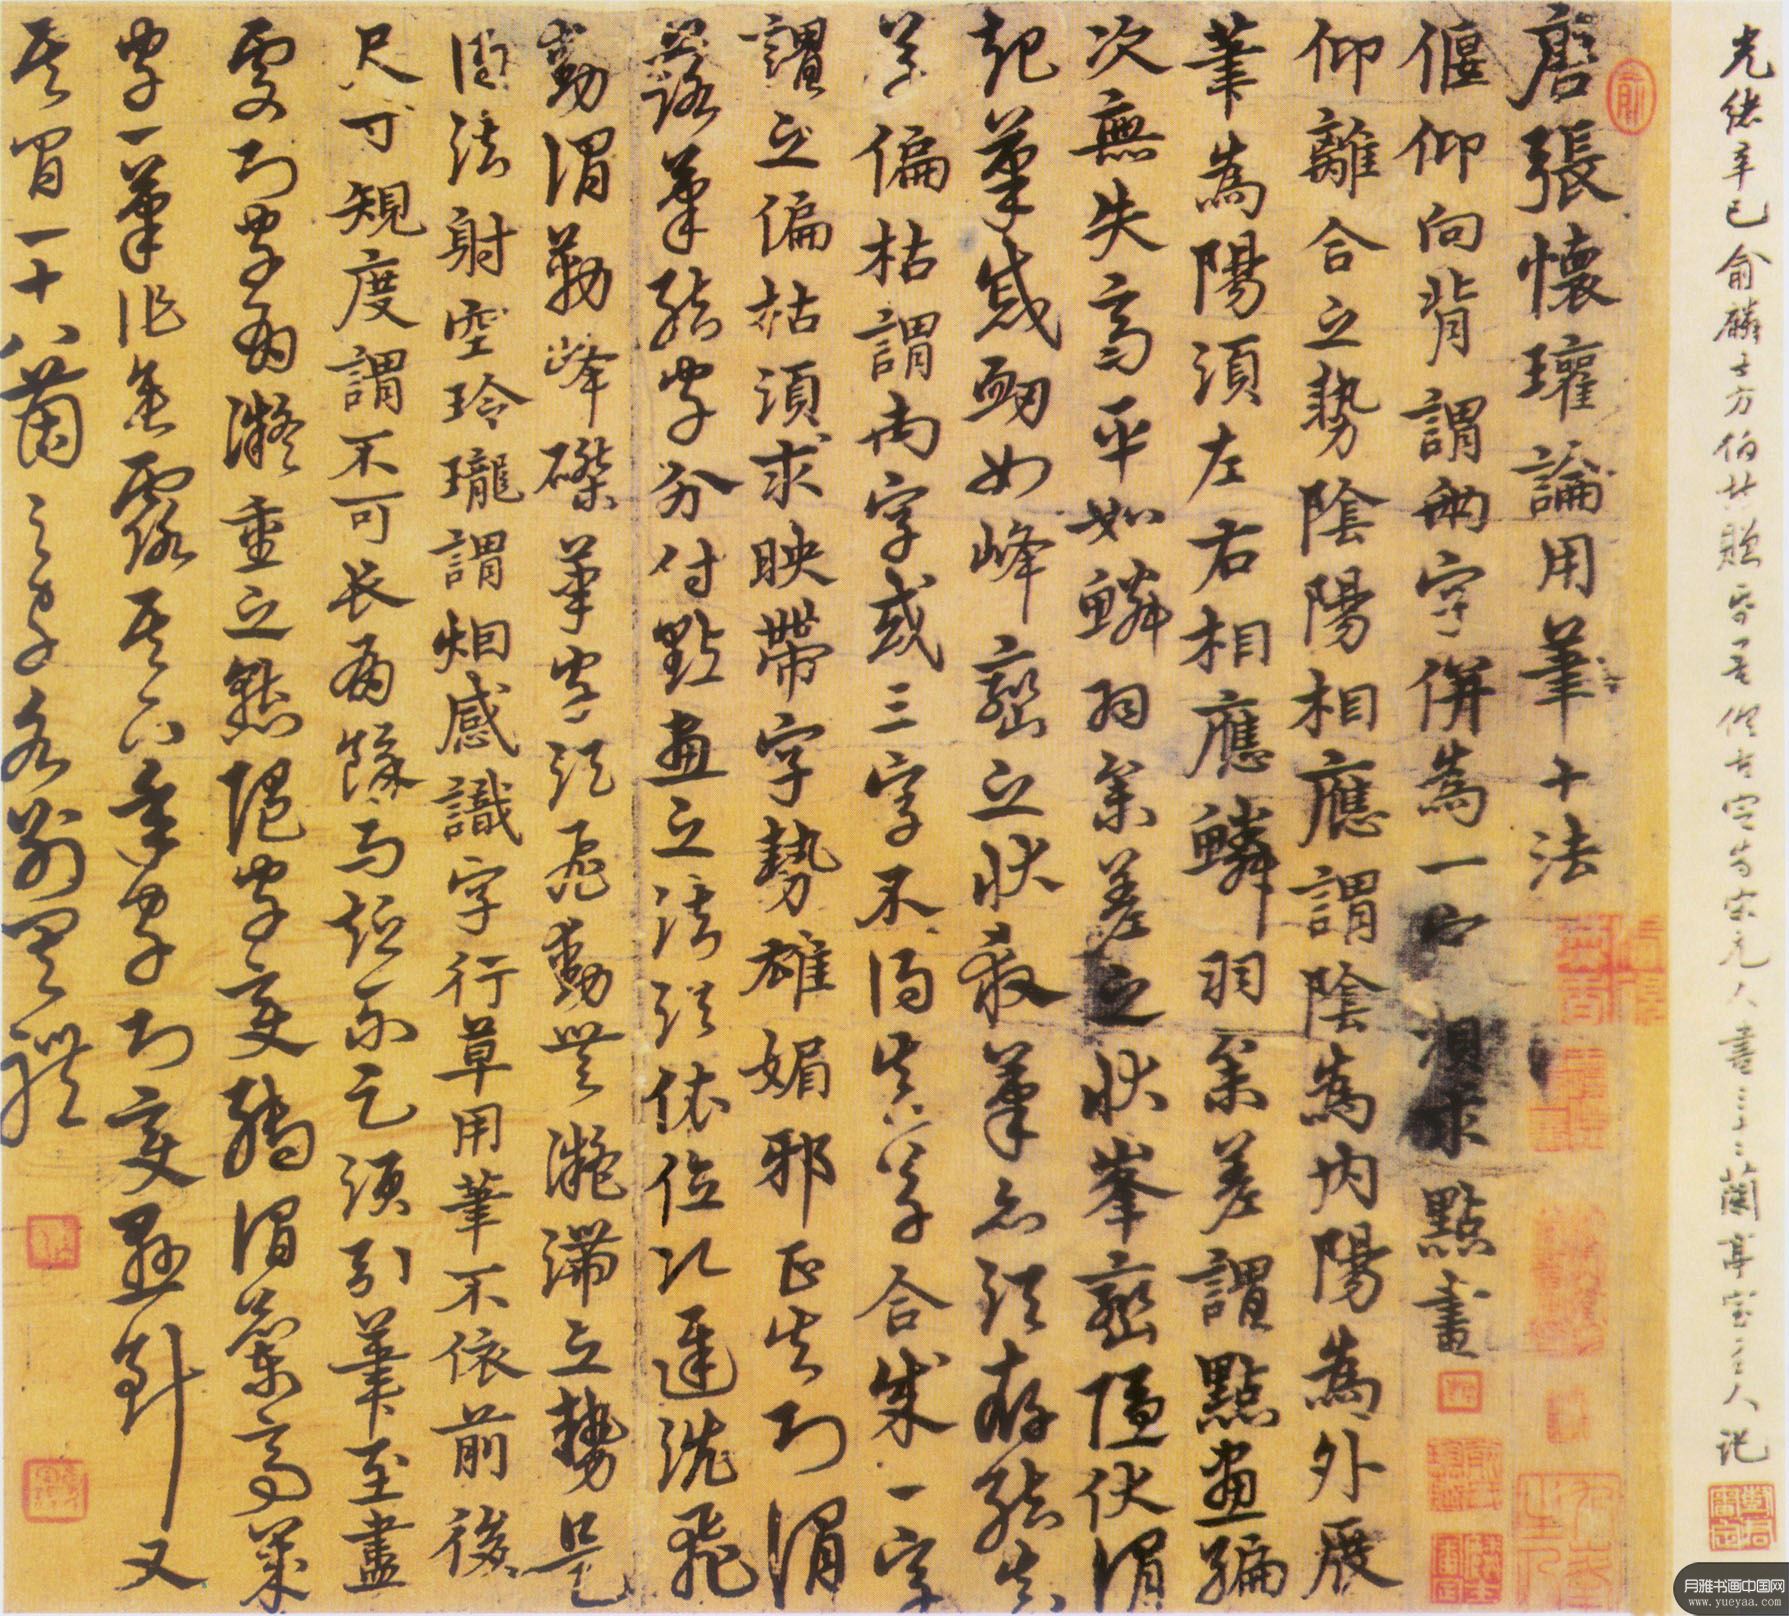 唐張懷瓘論用筆十法
偃仰向背謂兩字併為一字須求點畫
仰離合之勢陰陽相應謂陰為內陽為外展
筆為陽須左右相應鱗羽參差謂點畫編
次無失高平如鱗羽參差之狀峯巒隱伏謂
起筆或如峰巒之狀殺筆亦須存結真
草偏枯謂兩字或三字不得真草合成一字
謂之偏枯須求映帶字勢雄媚邪正失巧謂
落筆結字分付點畫之法須依位次遲澁飛
動謂勒峰磔筆字須飛動無凝滯之勢是
得法射空玲瓏謂烟感識字行草用筆不依前後
尺寸規度謂不可長而餘与短而乏須引筆至盡
處則字有凝重之態隨字變轉謂蘭亭
字一筆作垂露其下年字則變懸針又
其間一十八箇之字各別有體
光緒辛巳俞麟士方伯 贈 宋元人書 蘭亭室主人記
月雅书画中国网
www.yueyaa.com